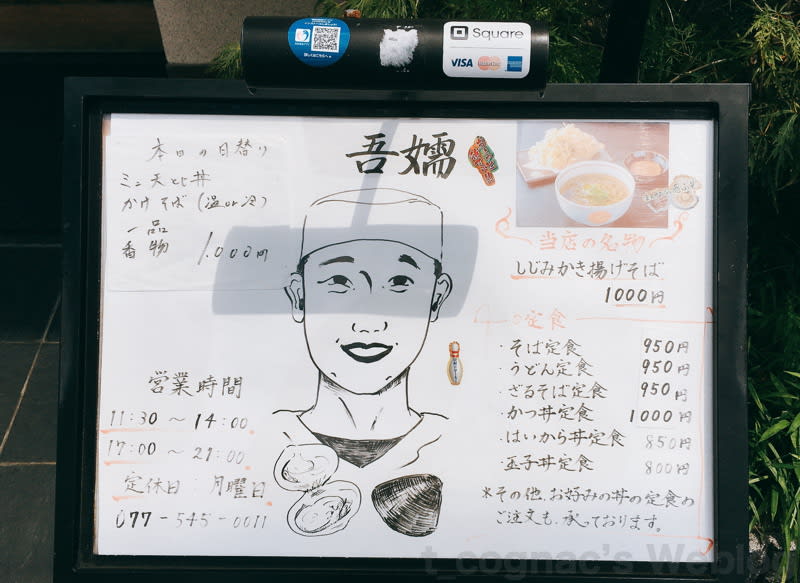 Square
VISA
本日の日替り
ミニ天とじ丼
かけそば(温or冷)
一品
香物 1.000円
吾嬬
当店の名物
しじみかき揚げそば
1000円
営業時間
11:30 ～ 14:00
17:00 ～ 21:00
定休日 月曜日
077-545-0011
定食
・そば定食 950円
・うどん定食 950円
・ざるそば定食 950円
・かつ丼定食 1000円
・はいから丼定食 850円
・玉子丼定食 800円
*その他、お好みの丼の定食の
ご注文も、承っております。
t_cognac's Weblog